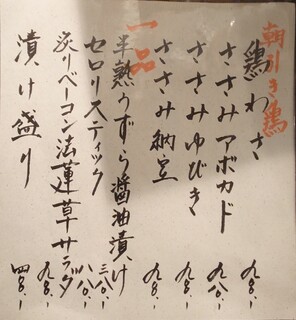 朝引き鶏
鶏わさ 九八〇.-
ささみアボカド 九八〇.-
ささみゆびき 九八〇.-
ささみ納豆 九八〇.-
一品
半熟うずら醤油漬け 三八〇.-
セロリスティック 八八〇.-
炙りベーコン法蓮草サラダ 九八〇.-
漬け盛り 四八〇.-